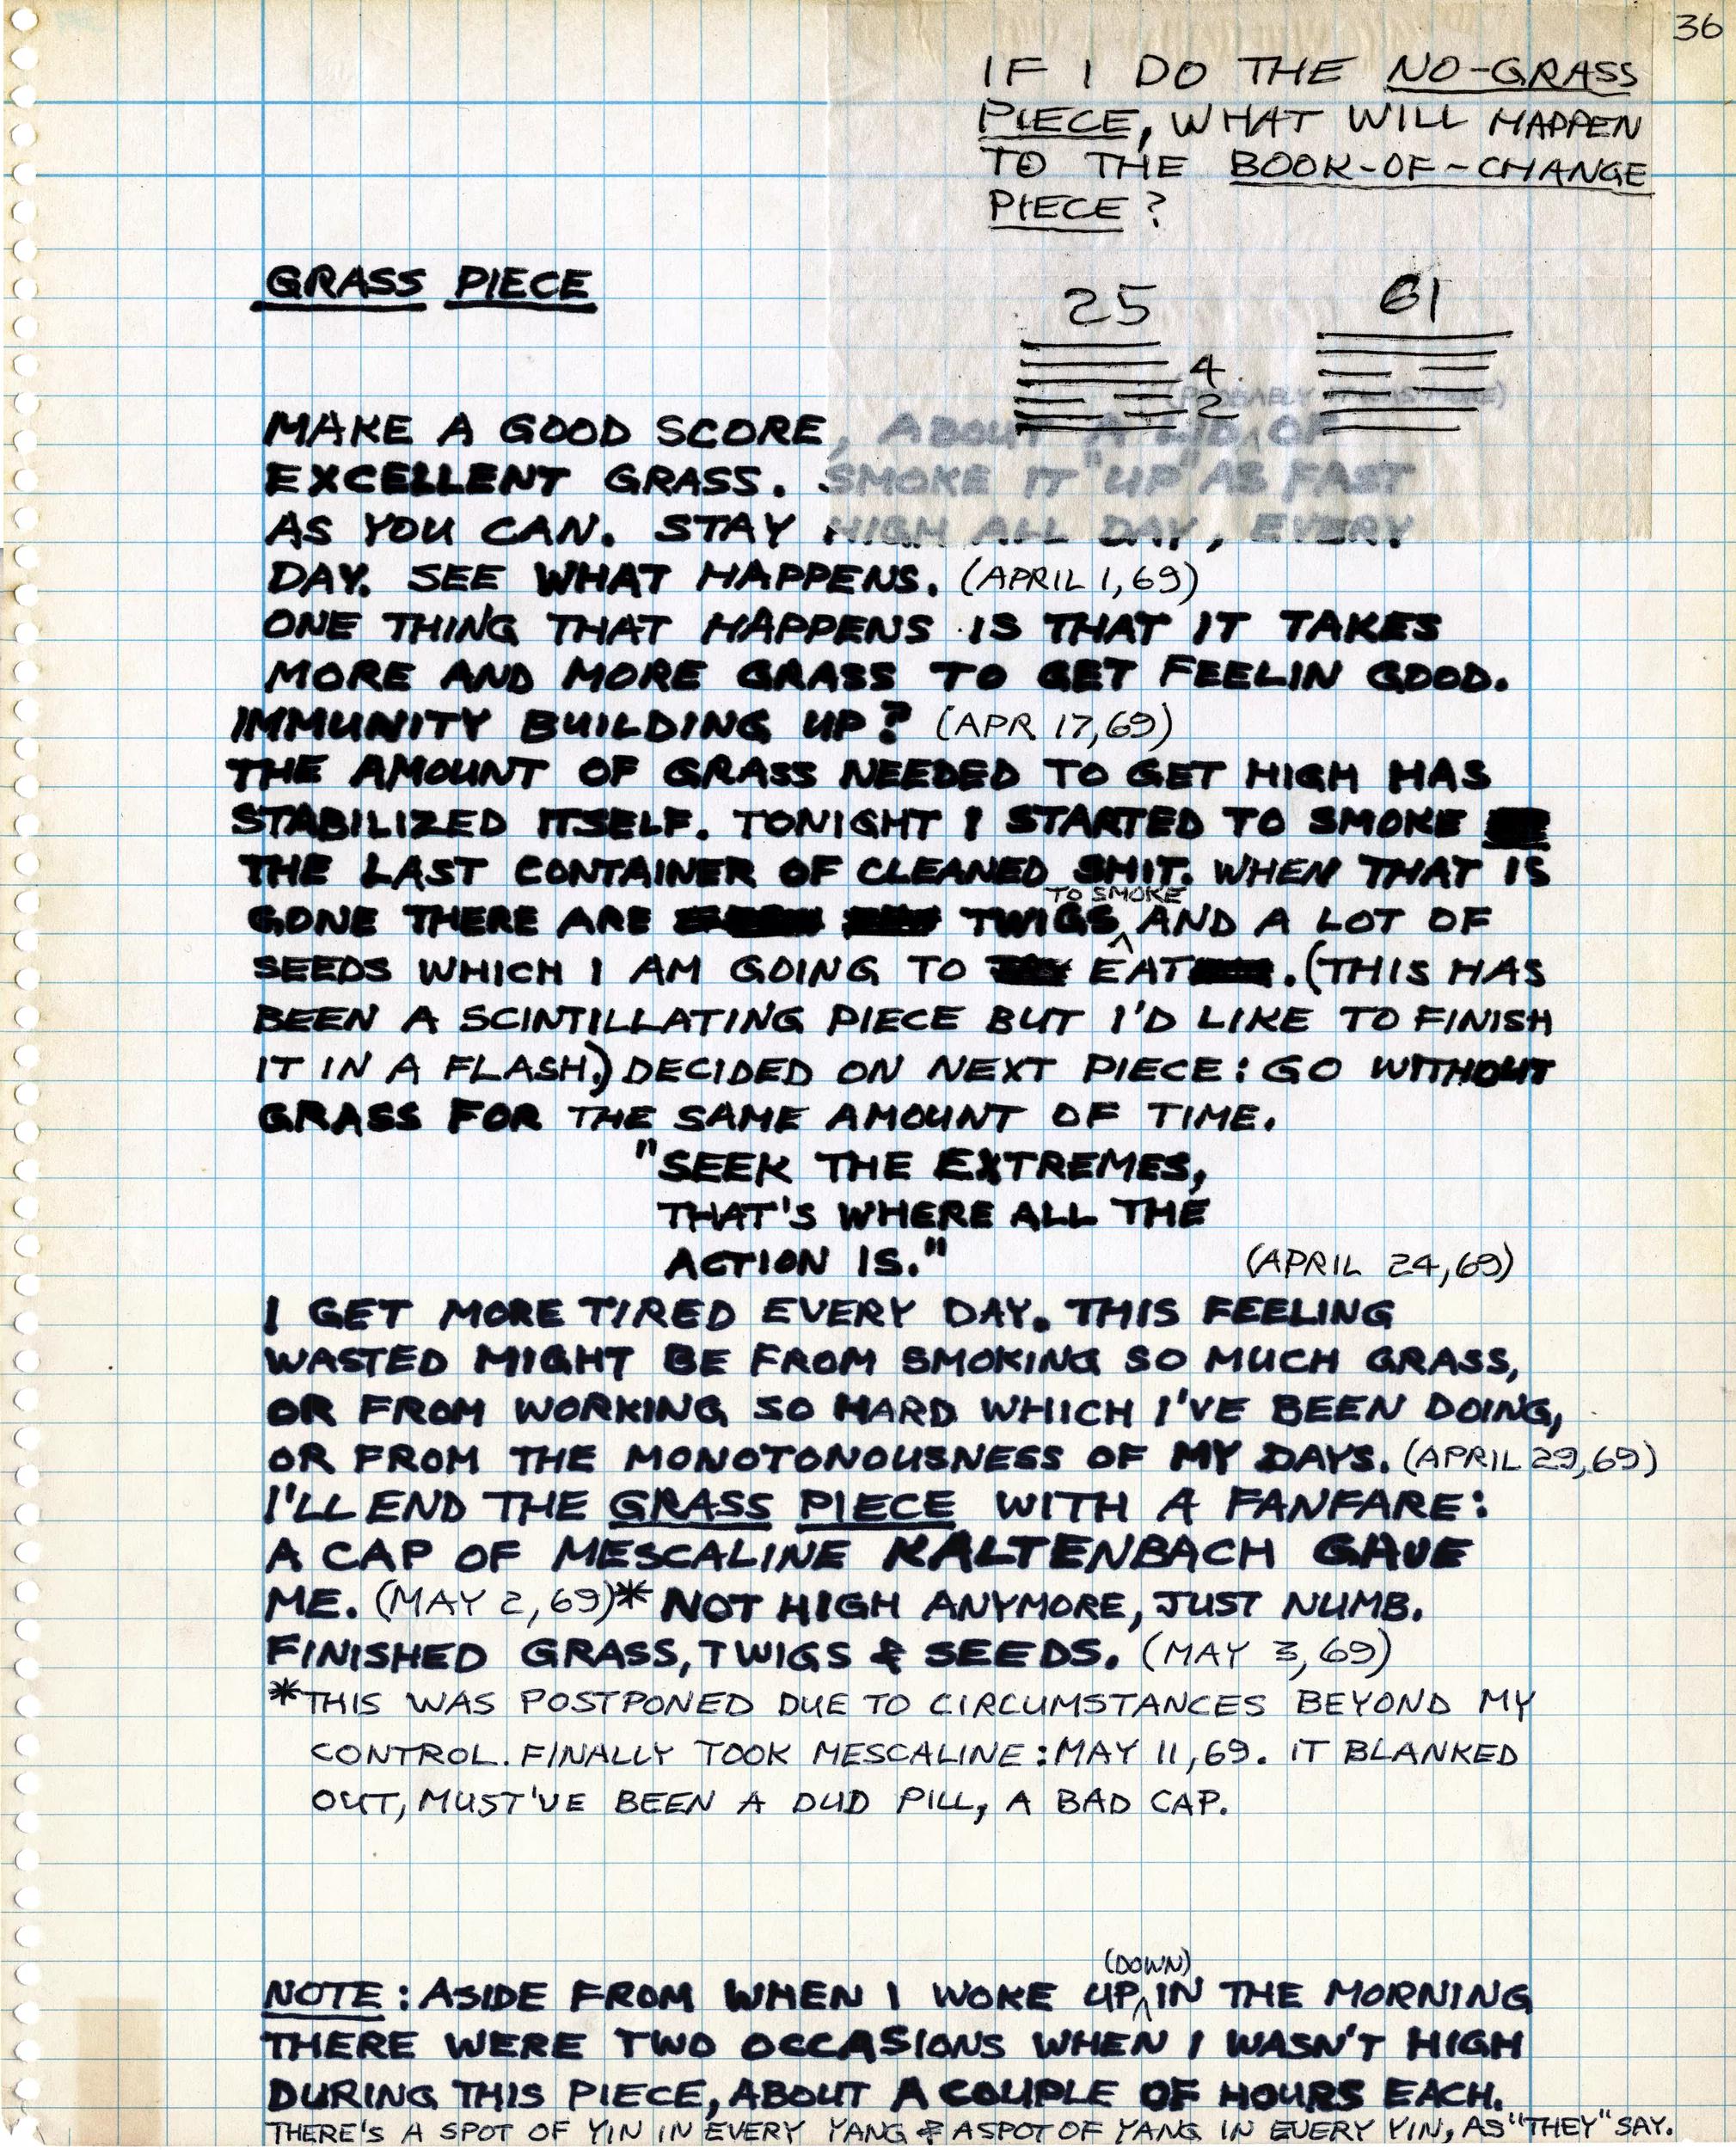 36
IF I DO THE NO-GRASS
PIECE, WHAT WILL HAPPEN
TO THE BOOK-OF-CHANGE
PIECE?
GRASS PIECE
25 61
4
2
(PROBABLY AT LEAST MORE)
MAKE A GOOD SCORE, ABOUT A LID OF
EXCELLENT GRASS. SMOKE IT "UP" AS FAST
AS YOU CAN. STAY HIGH ALL DAY, EVERY
DAY. SEE WHAT HAPPENS. (APRIL 1,69)
ONE THING THAT HAPPENS IS THAT IT TAKES
MORE AND MORE GRASS TO GET FEELIN GOOD.
IMMUNITY BUILDING UP? (APR 17,69)
THE AMOUNT OF GRASS NEEDED TO GET HIGH HAS
STABILIZED ITSELF. TONIGHT I STARTED TO SMOKE
THE LAST CONTAINER OF CLEANED SHIT. WHEN THAT IS
TO SMOKE
GONE THERE ARE TWIGS AND A LOT OF
SEEDS WHICH I AM GOING TO EAT. (THIS HAS
BEEN A SCINTILLATING PIECE BUT I'D LIKE TO FINISH
IT IN A FLASH.) DECIDED ON NEXT PIECE: GO WITHOUT
GRASS FOR THE SAME AMOUNT OF TIME.
"SEEK THE EXTREMES,
THAT'S WHERE ALL THE
ACTION IS." (APRIL 24,69)
I GET MORE TIRED EVERY DAY. THIS FEELING
WASTED MIGHT BE FROM SMOKING SO MUCH GRASS,
OR FROM WORKING SO HARD WHICH I'VE BEEN DOING,
OR FROM THE MONOTONOUSNESS OF MY DAYS. (APRIL 29,69)
I'LL END THE GRASS PIECE WITH A FANFARE:
A CAP OF MESCALINE KALTENBACH GAVE
ME. (MAY 2,69)* NOT HIGH ANYMORE, JUST NUMB.
FINISHED GRASS, TWIGS & SEEDS. (MAY 3,69)
*THIS WAS POSTPONED DUE TO CIRCUMSTANCES BEYOND MY
CONTROL. FINALLY TOOK MESCALINE: MAY 11,69. IT BLANKED
OUT, MUST'VE BEEN A DUD PILL, A BAD CAP.
(DOWN)
NOTE: ASIDE FROM WHEN I WOKE UP IN THE MORNING
THERE WERE TWO OCCASIONS WHEN I WASN'T HIGH
DURING THIS PIECE, ABOUT A COUPLE OF HOURS EACH.
THERE'S A SPOT OF YIN IN EVERY YANG & A SPOT OF YANG IN EVERY YIN, AS "THEY" SAY.